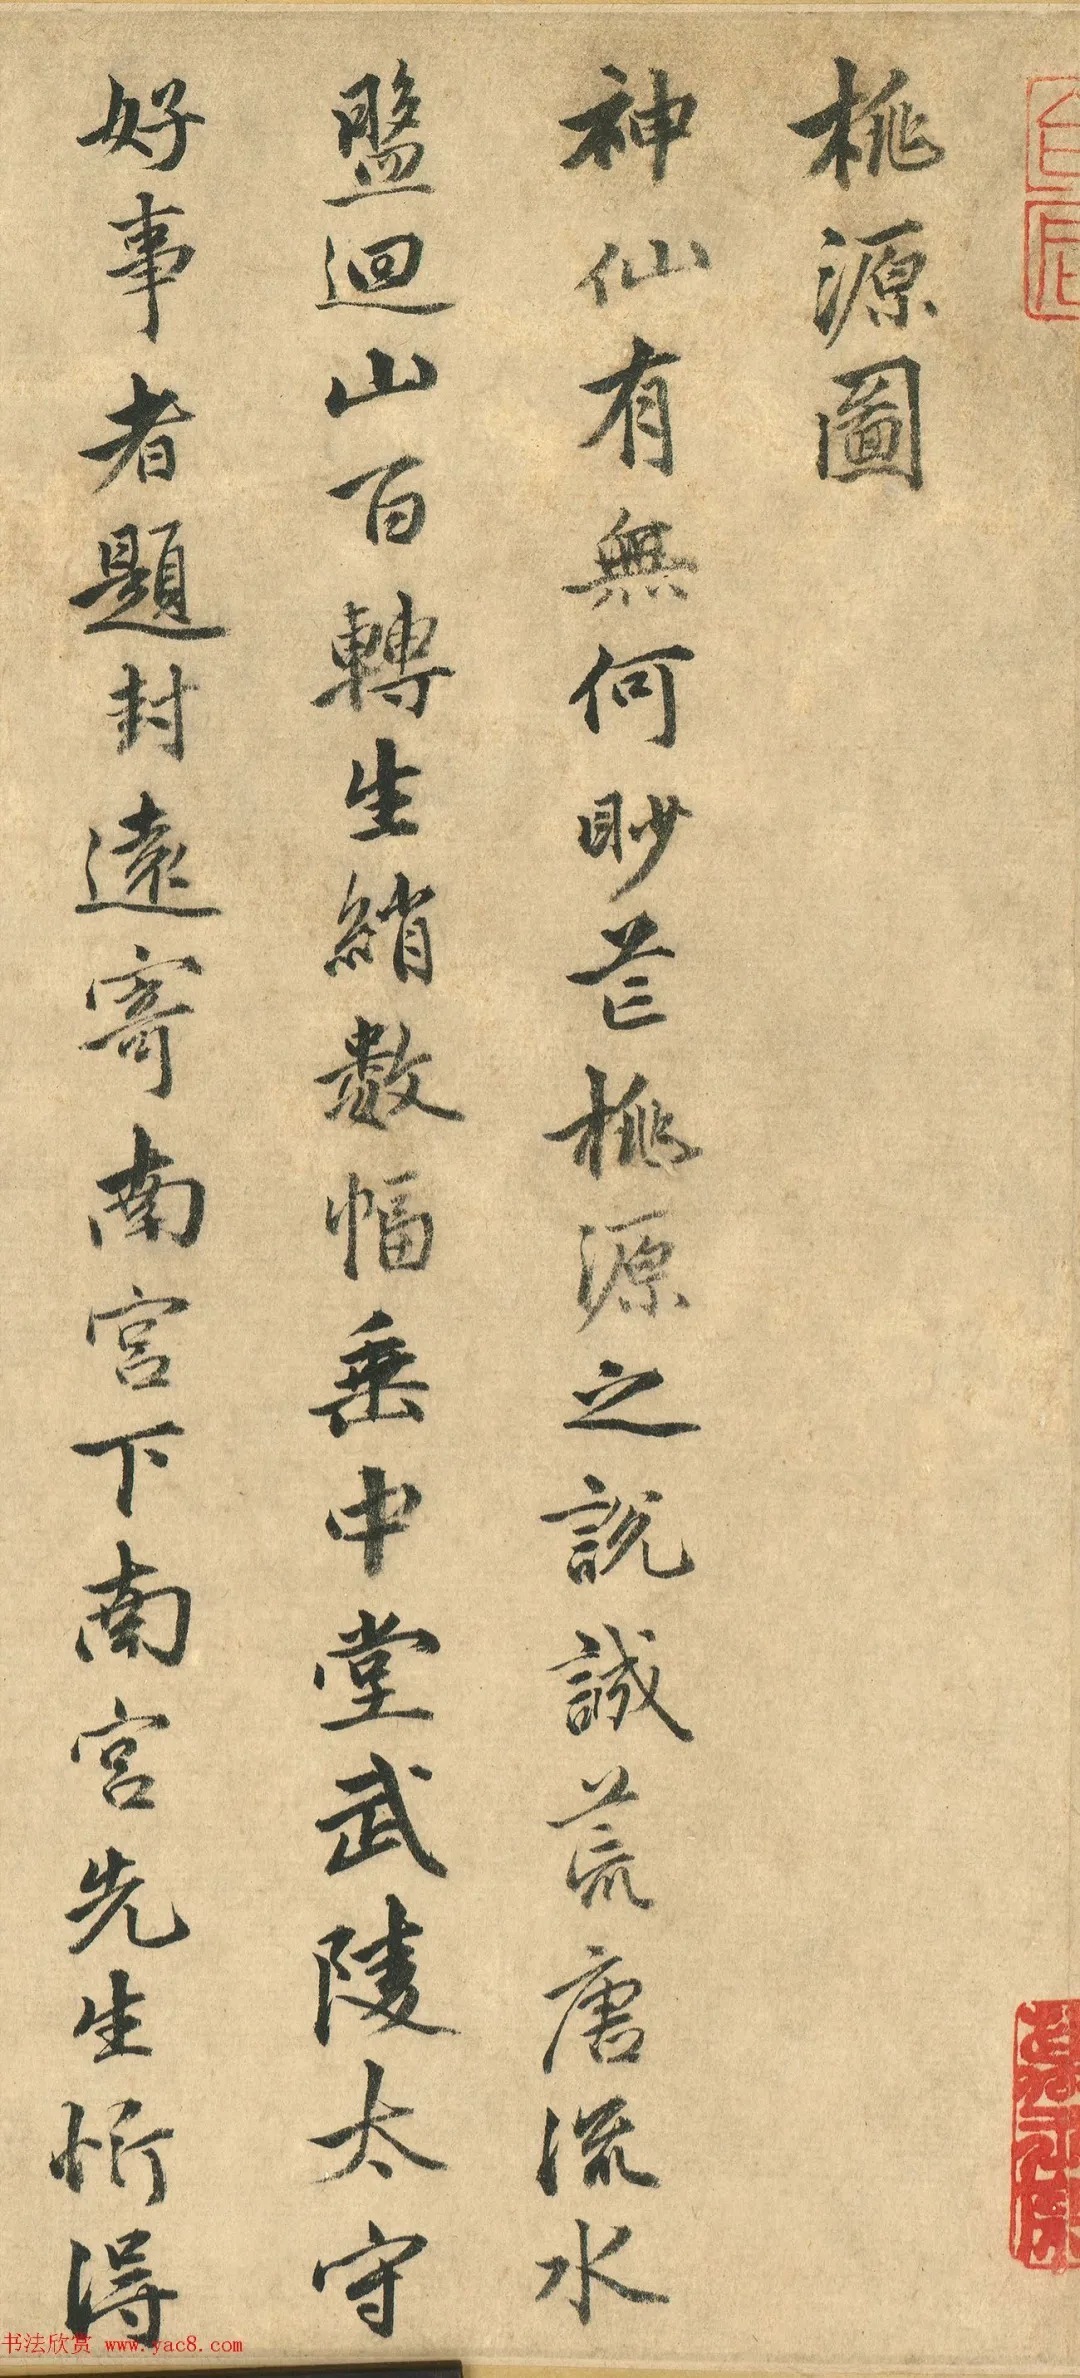 桃源圖
神仙有無何眇茫桃源之說誠荒唐流水
盤迴山百轉生綃數幅垂中堂武陵太守
好事者題封遠寄南宮下南宮先生忻得
书法欣赏 www.yac8.com